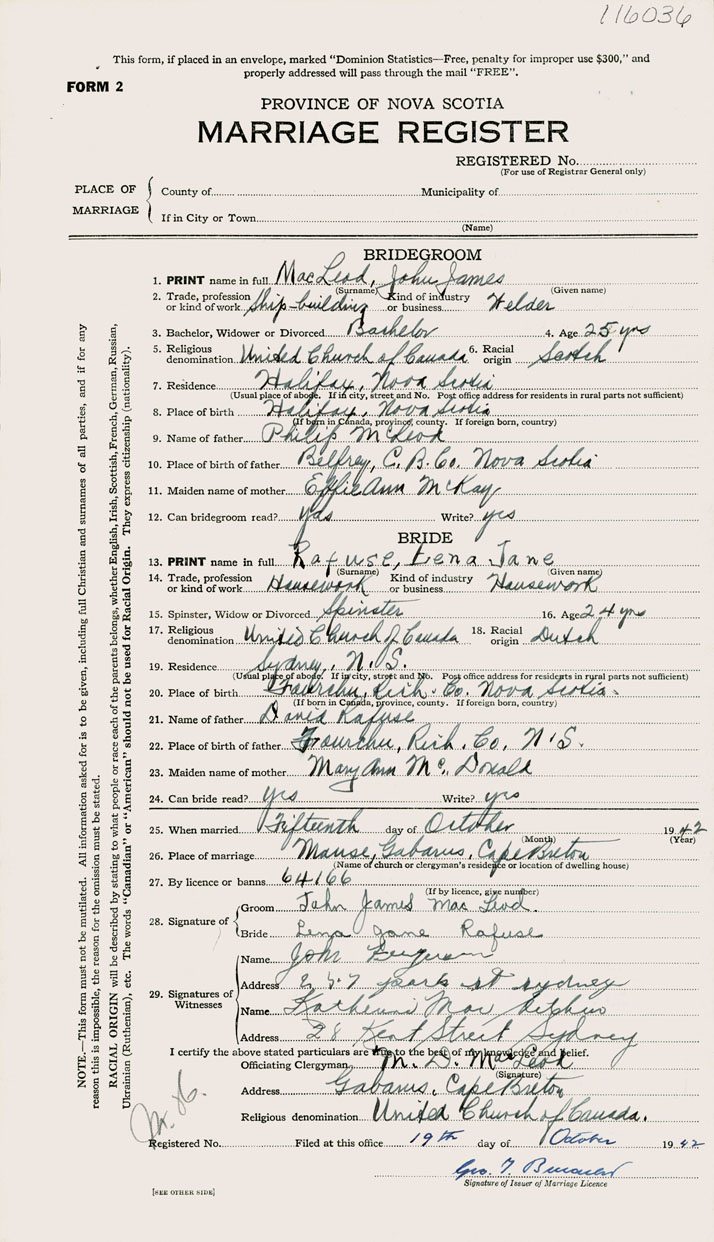 116036
This form, if placed in an envelope, marked "Dominion Statistics—Free, penalty for improper use $300," and
properly addressed will pass through the mail "FREE".
FORM 2
PROVINCE OF NOVA SCOTIA
MARRIAGE REGISTER
REGISTERED No.
(For use of Registrar General only)
PLACE OF MARRIAGE
County of Municipality of
If in City or Town
(Name)
BRIDEGROOM
1. PRINT name in full MacLeod, John James
(Surname) (Given name)
2. Trade, profession or kind of work Ship-building Kind of industry or business Welder
3. Bachelor, Widower or Divorced Bachelor 4. Age 25 yrs
5. Religious denomination United Church of Canada 6. Racial origin Scotch
7. Residence Halifax, Nova Scotia
(Usual place of abode. If in city, street and No. Post office address for residents in rural parts not sufficient)
8. Place of birth Halifax, Nova Scotia
(If born in Canada, province, county. If foreign born, country)
9. Name of father Philip McLeod
10. Place of birth of father Belfrey, C. B. Co. Nova Scotia
11. Maiden name of mother Effie Ann McKay
12. Can bridegroom read? yes Write? yes
BRIDE
13. PRINT name in full Rafuse, Lena Jane
(Surname) (Given name)
14. Trade, profession or kind of work Housework Kind of industry or business Housework
15. Spinster, Widow or Divorced Spinster 16. Age 24 yrs
17. Religious denomination United Church of Canada 18. Racial origin Dutch
19. Residence Sydney, N. S.
(Usual place of abode. If in city, street and No. Post office address for residents in rural parts not sufficient)
20. Place of birth Fourchu, Rich. Co. Nova Scotia
(If born in Canada, province, county. If foreign born, country)
21. Name of father David Rafuse
22. Place of birth of father Fourchu, Rich. Co. N. S.
23. Maiden name of mother Mary Ann Mc. Donald
24. Can bride read? yes Write? yes
25. When married Fifteenth day of October 1942
(Month) (Year)
26. Place of marriage Manse, Gabarus, Cape Breton
(Name of church or clergyman's residence or location of dwelling house)
27. By licence or banns 64166
(If by licence, give number)
28. Signature of
Groom John James Mac Leod.
Bride Lena Jane Rafuse
29. Signatures of Witnesses
Name John Ferguson
Address 257 park st sydney
Name Katherine Mac
Address 28 Kent Street Sydney
I certify the above stated particulars are true to the best of my knowledge and belief.
Officiating Clergyman M. D. MacLeod
(Signature)
Address Gabarus, Cape Breton
Religious denomination United Church of Canada.
Registered No. Filed at this office 19th day of October 1942
Geo. T.
Signature of Issuer of Marriage Licence
[SEE OTHER SIDE]
NOTE.—This form must not be mutilated. All information asked for is to be given, including full Christian and surnames of all parties, and if for any
reason this is impossible, the reason for the omission must be stated.
RACIAL ORIGIN will be described by stating to what people or race each of the parents belongs, whether English, Irish, Scottish, French, German, Russian,
Ukrainian (Ruthenian), etc. The words "Canadian" or "American" should not be used for Racial Origin. They express citizenship (nationality).